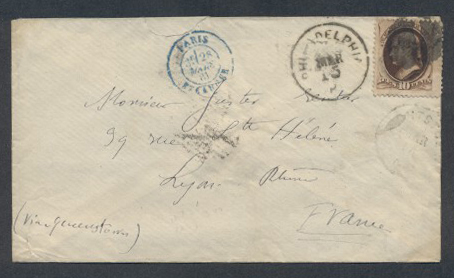 PARIS
28
MARS
81
ETRANGER
PHILADELPHIA
MAR
15
10
Monsieur
39 rue Ste Hélène
Lyon Rhône
France
(Via Queenstown)